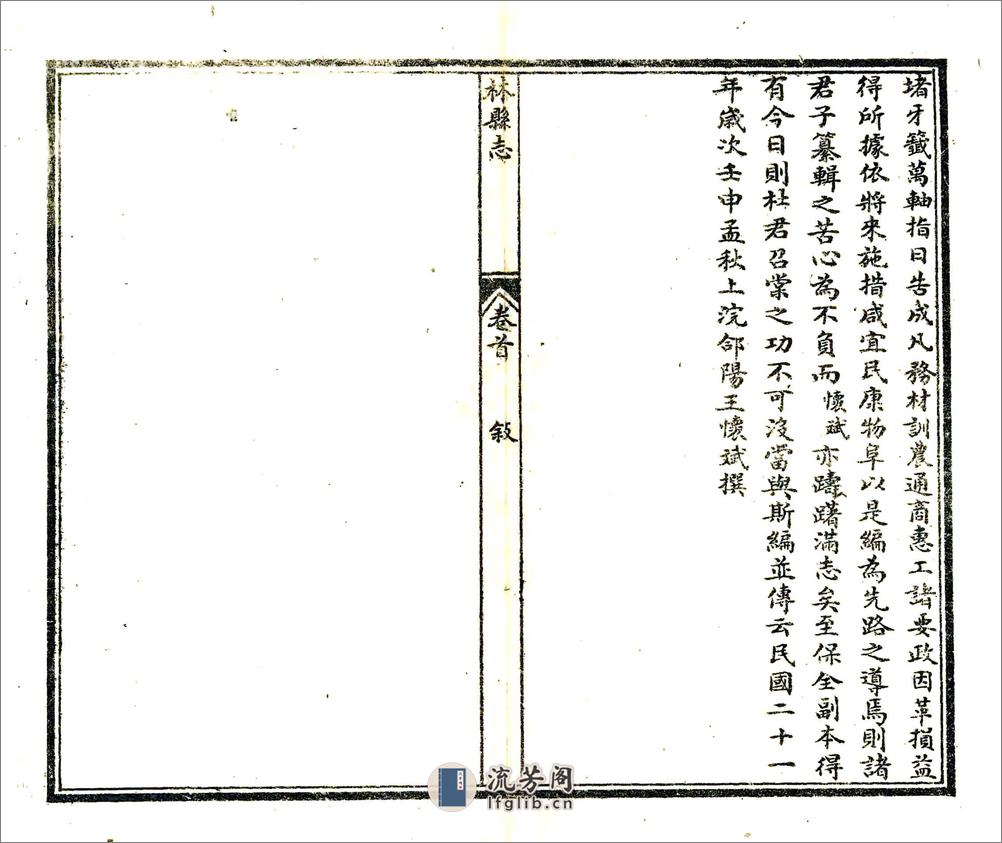 堵牙籤萬軸指日告成凡務材訓農通商惠工諸要政因革損益
得所據依將來施措咸宜民康物阜以是編為先路之導焉則諸
君子纂輯之苦心為不負而懷斌亦躊躇滿志矣至保全副本得
有今日則杜君召棠之功不可沒當與斯編並傳云民國二十一
年歲次壬申孟秋上浣郃陽王懷斌撰
林縣志
卷首
敘
流芳阁
lfglib.cn